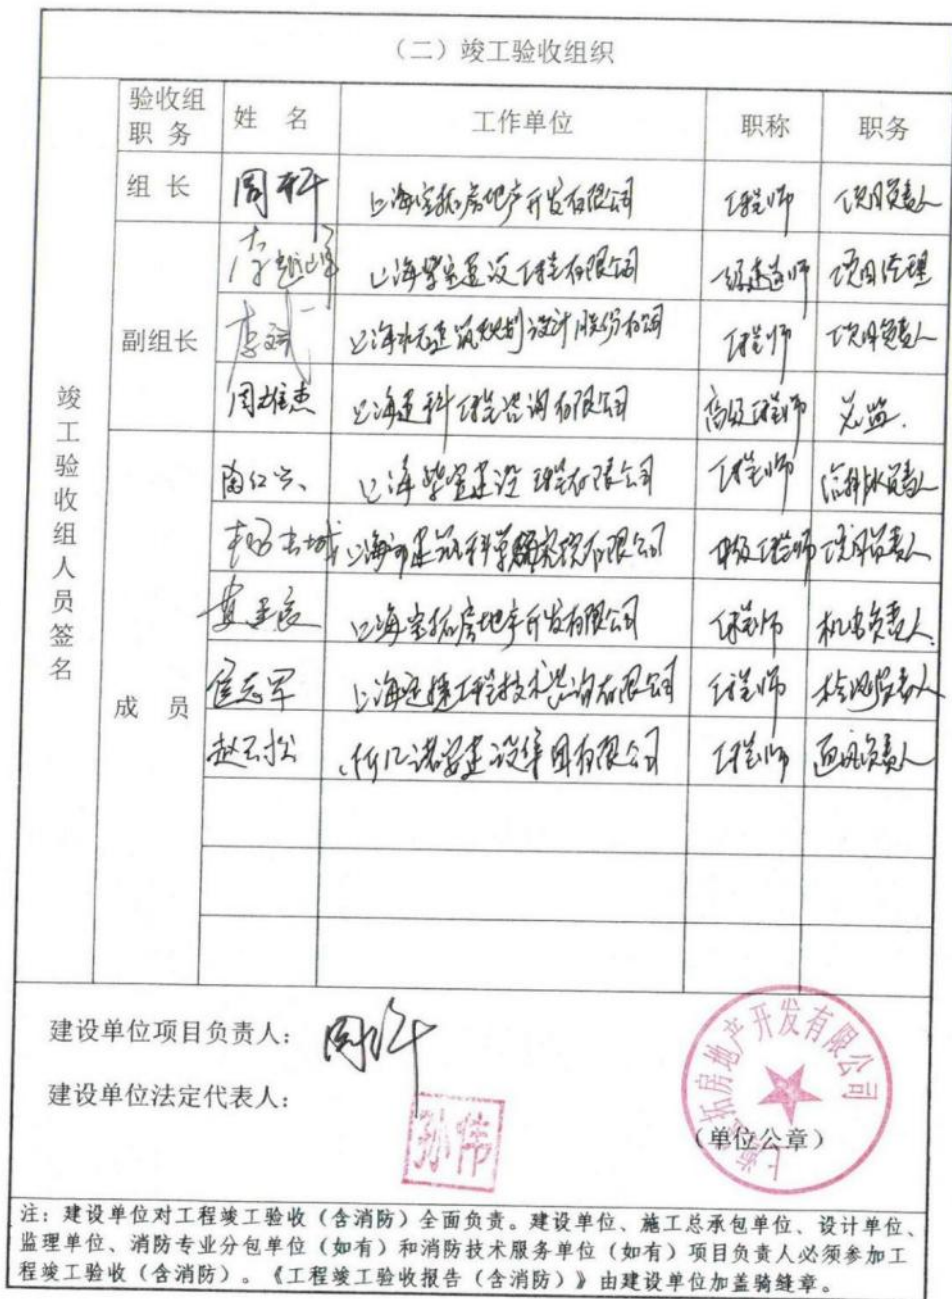 （二）竣工验收组织
验收组职务 姓名 工作单位 职称 职务
竣工验收组人员签名
组长 周 上海宝拓房地产开发有限公司 工程师 项目负责人
副组长
李越峰 上海紫宝建设工程有限公司 一级建造师 项目经理
李斌 上海水石建筑规划设计股份有限公司 工程师 项目负责人
周雄杰 上海建科工程咨询有限公司 高级工程师 总监.
成员
陶红兴 上海紫宝建设工程有限公司 工程师 给排水负责人
杨吉城 上海市建筑科学研究院有限公司 中级工程师 项目负责人
上海宝拓房地产开发有限公司 工程师 机电负责人.
侯志军 上海 工程技术咨询有限公司 工程师 检测负责人
赵云松 亿诺安建设集团有限公司 工程师 负责人
建设单位项目负责人： 周
建设单位法定代表人： 孙伟
上海宝拓房地产开发有限公司
（单位公章）
注：建设单位对工程竣工验收（含消防）全面负责。建设单位、施工总承包单位、设计单位、
监理单位、消防专业分包单位（如有）和消防技术服务单位（如有）项目负责人必须参加工
程竣工验收（含消防）。《工程竣工验收报告（含消防）》由建设单位加盖骑缝章。